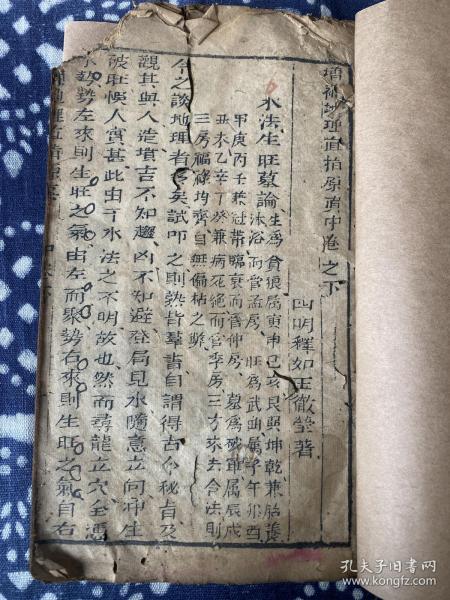 增補地理直指原眞中卷之下
四明釋如玉徹瑩著
水法生旺墓論
生爲貪狼屬寅申巳亥艮巽坤乾兼胎養
沐浴而管孟房旺爲武曲屬子午卯酉
甲庚丙壬兼冠帶臨衰而管仲房墓爲破軍属辰戌
丑未乙辛丁癸兼病死絶而官季房三方來去合法則
三房福祿均齊自無偏枯之獘
今之談地理者多矣試叩之則孰皆羣書自謂得古今秘旨及
觀其與人造墳吉不知趨凶不知避登局見水隨意立向冲生
破旺悞人實甚此由于水法之不明故也然而尋龍立穴全憑
水勢勢左來則生旺之氣由左而聚勢右來則生旺之氣自右
孔夫子旧书网
www.kongfz.com